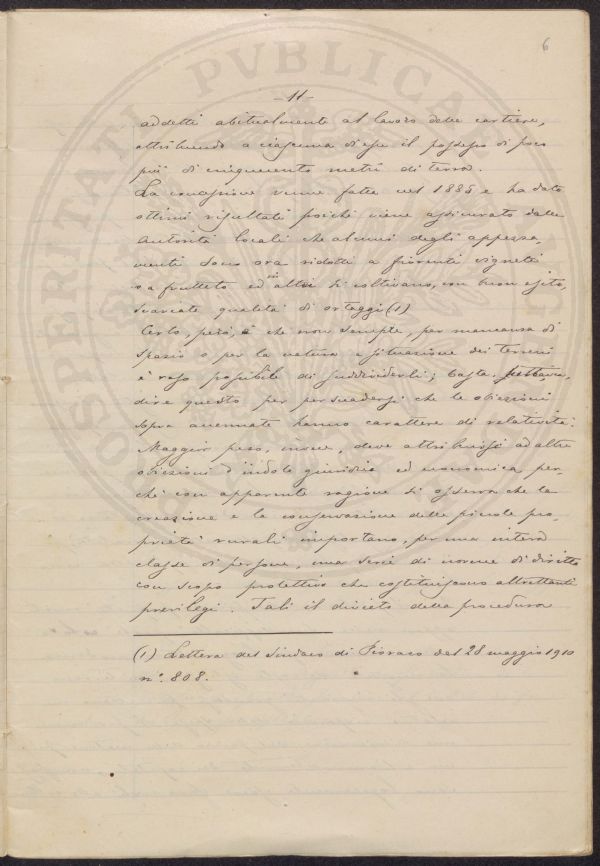 6
-11-
addetti abitualmente al lavoro delle cartiere,
attribuendo a ciascuna di esse il possesso di poco
più di cinquecento metri di terra.
La concessione venne fatta nel 1885 e ha dato
ottimi risultati poiché viene assicurato dalle
Autorità locali che alcuni degli appezza,
menti sono ora ridotti a fiorenti vigneti
o a frutteto ed in altri si coltivano, con buon esito,
svariate qualità di ortaggi (1)
Certo, però, è che non sempre, per mancanza di
spazio o per la natura e situazione dei terreni
è reso possibile di suddividerli; basta
dire questo per persuadersi che le obiezioni
sopra accennate hanno carattere di relatività.
Maggior peso, invece, deve attribuirsi ad altre
obiezioni d'indole giuridica ed economica per
ché con apparente ragione si osserva che la
creazione e la conservazione delle piccole pro,
prietà rurali importano, per una intera
classe di persone, una serie di norme di diritto
con scopo protettivo che costituiscono altrettanti
privilegi. Tali il divieto della procedura
(1) Lettera del Sindaco di Pioraco del 28 maggio 1910
n°. 808.
PROSPERITATI PVBLICAE